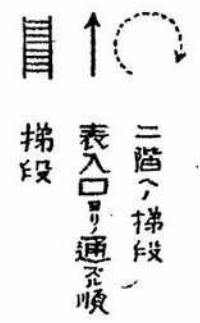 二階ヘノ梯段
表入口ヨリノ通ズル順
梯段